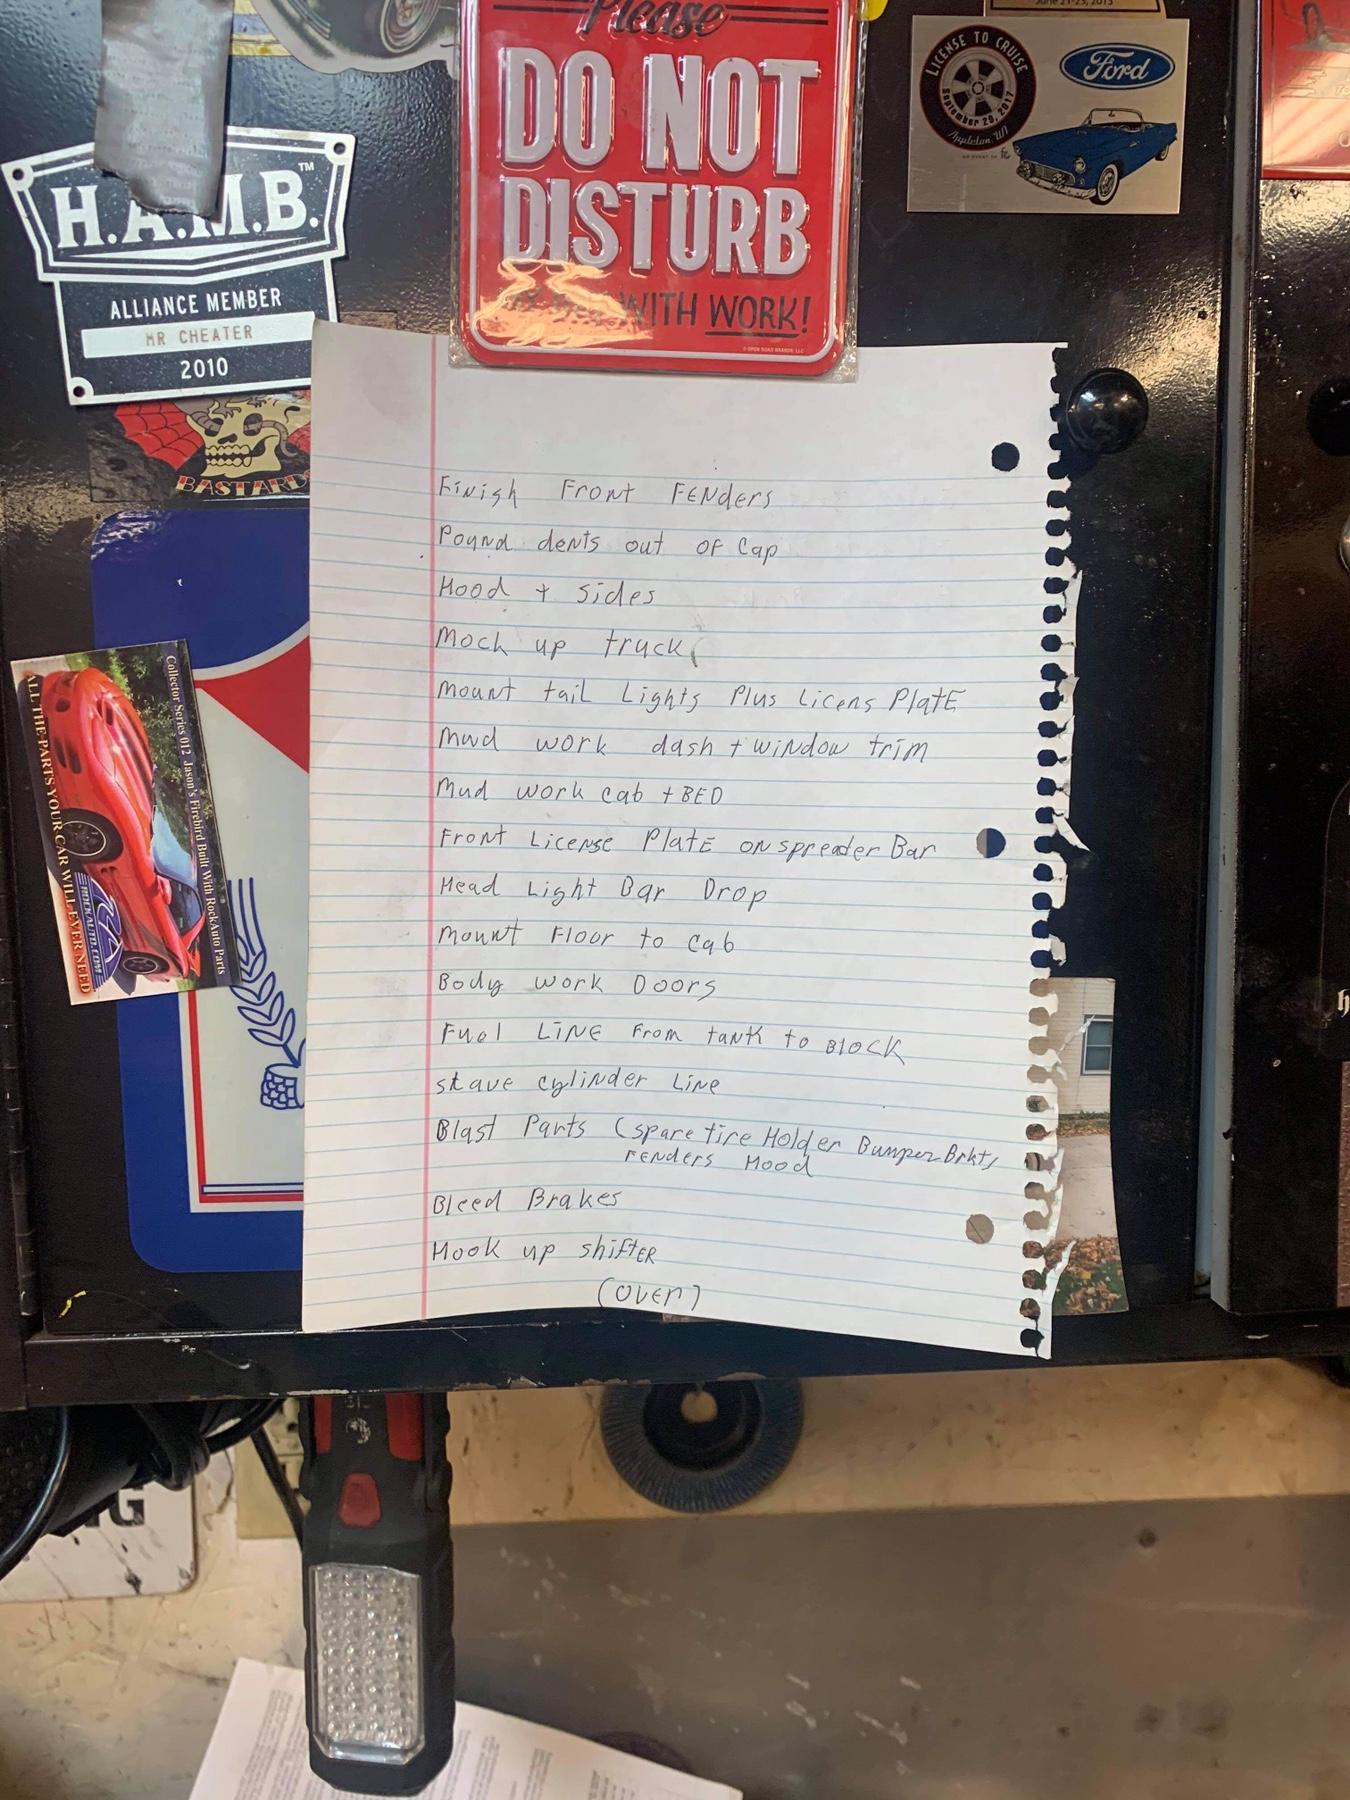 June 21-23, 2013
Please
DO NOT
DISTURB
WITH WORK!
© OPEN ROAD BRANDS, LLC
LICENSE TO CRUISE
September 29, 2017
Appleton, WI
Ford
H.A.M.B.™
ALLIANCE MEMBER
MR CHEATER
2010
BASTARDS
Collector Series 012 Jason's Firebird Built With RockAuto Parts
ALL THE PARTS YOUR CAR WILL EVER NEED
ROCKAUTO.COM
Finish Front FENders
Pound dents out of Cap
Hood + sides
Mock up truck
Mount tail Lights Plus Licens PlatE
Mud work dash + window trim
Mud work cab + BED
Front License PlatE on spreader Bar
Head Light Bar Drop
Mount Floor to cab
Body work Doors
Fuel LiNE From tank to BlOCK
slave cylinder Line
Blast Parts (spare tire Holder Bumper Brkts
FENDERS Hood
Bleed Brakes
Hook up shiftER
(OVEr)